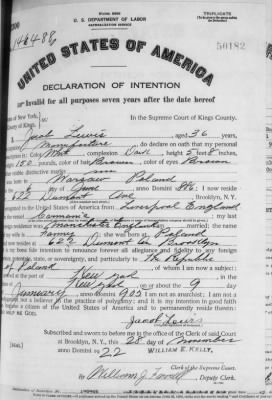 U. S. DEPARTMENT OF LABOR
NATURALIZATION SERVICE
TRIPLICATE
No. 146486
50182
UNITED STATES OF AMERICA
DECLARATION OF INTENTION
Invalid for all purposes seven years after the date hereof
State of New York,
In the Supreme Court of Kings County.
County of Kings,
I, Jacob Lewis, aged 36 years,
occupation, do declare on oath that my personal
description is: Color White, complexion Dark, height 5 feet 8 inches,
weight pounds, color of hair Brown, color of eyes Brown
other visible distinctive marks
Poland
day of June, anno Domini 1886; I now reside
at 622 Dumont Ave, Brooklyn, N. Y.
I emigrated to the United States of America from Liverpool England
on the vessel; my last
foreign residence was Manchester England; I am married; the name
of my wife is; she was born at Poland
and now resides at 622 Dumont Av Brooklyn
It is my bona fide intention to renounce forever all allegiance and fidelity to any foreign
prince, potentate, state, or sovereignty, and particularly to The Republic
of Poland, of whom I am now a subject;
I arrived at the port of New York, in the
State of New York, on or about the 9 day
of January, anno Domini 1903; I am not an anarchist; I am not a
polygamist nor a believer in the practice of polygamy; and it is my intention in good faith
to become a citizen of the United States of America and to permanently reside therein:
SO HELP ME GOD.
Jacob Lewis
Subscribed and sworn to before me in the office of the Clerk of said Court
[SEAL]
at Brooklyn, N. Y., this 28 day of November
anno Domini 1922
WILLIAM E. KELLY,
Clerk of the Supreme Court.
By William J., Deputy Clerk.